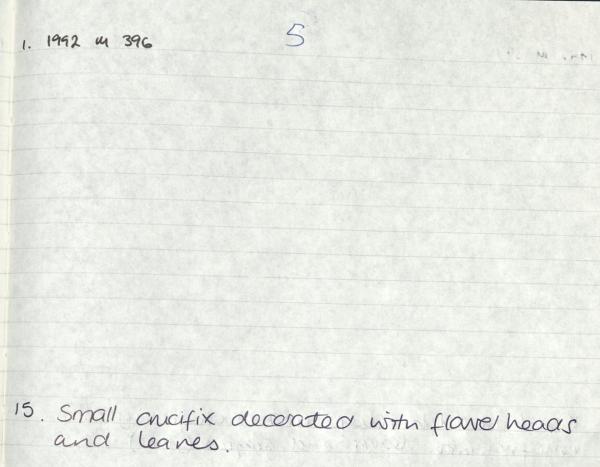 5
1. 1992 M 396
15. Small crucifix decorated with flower heads
and leaves.